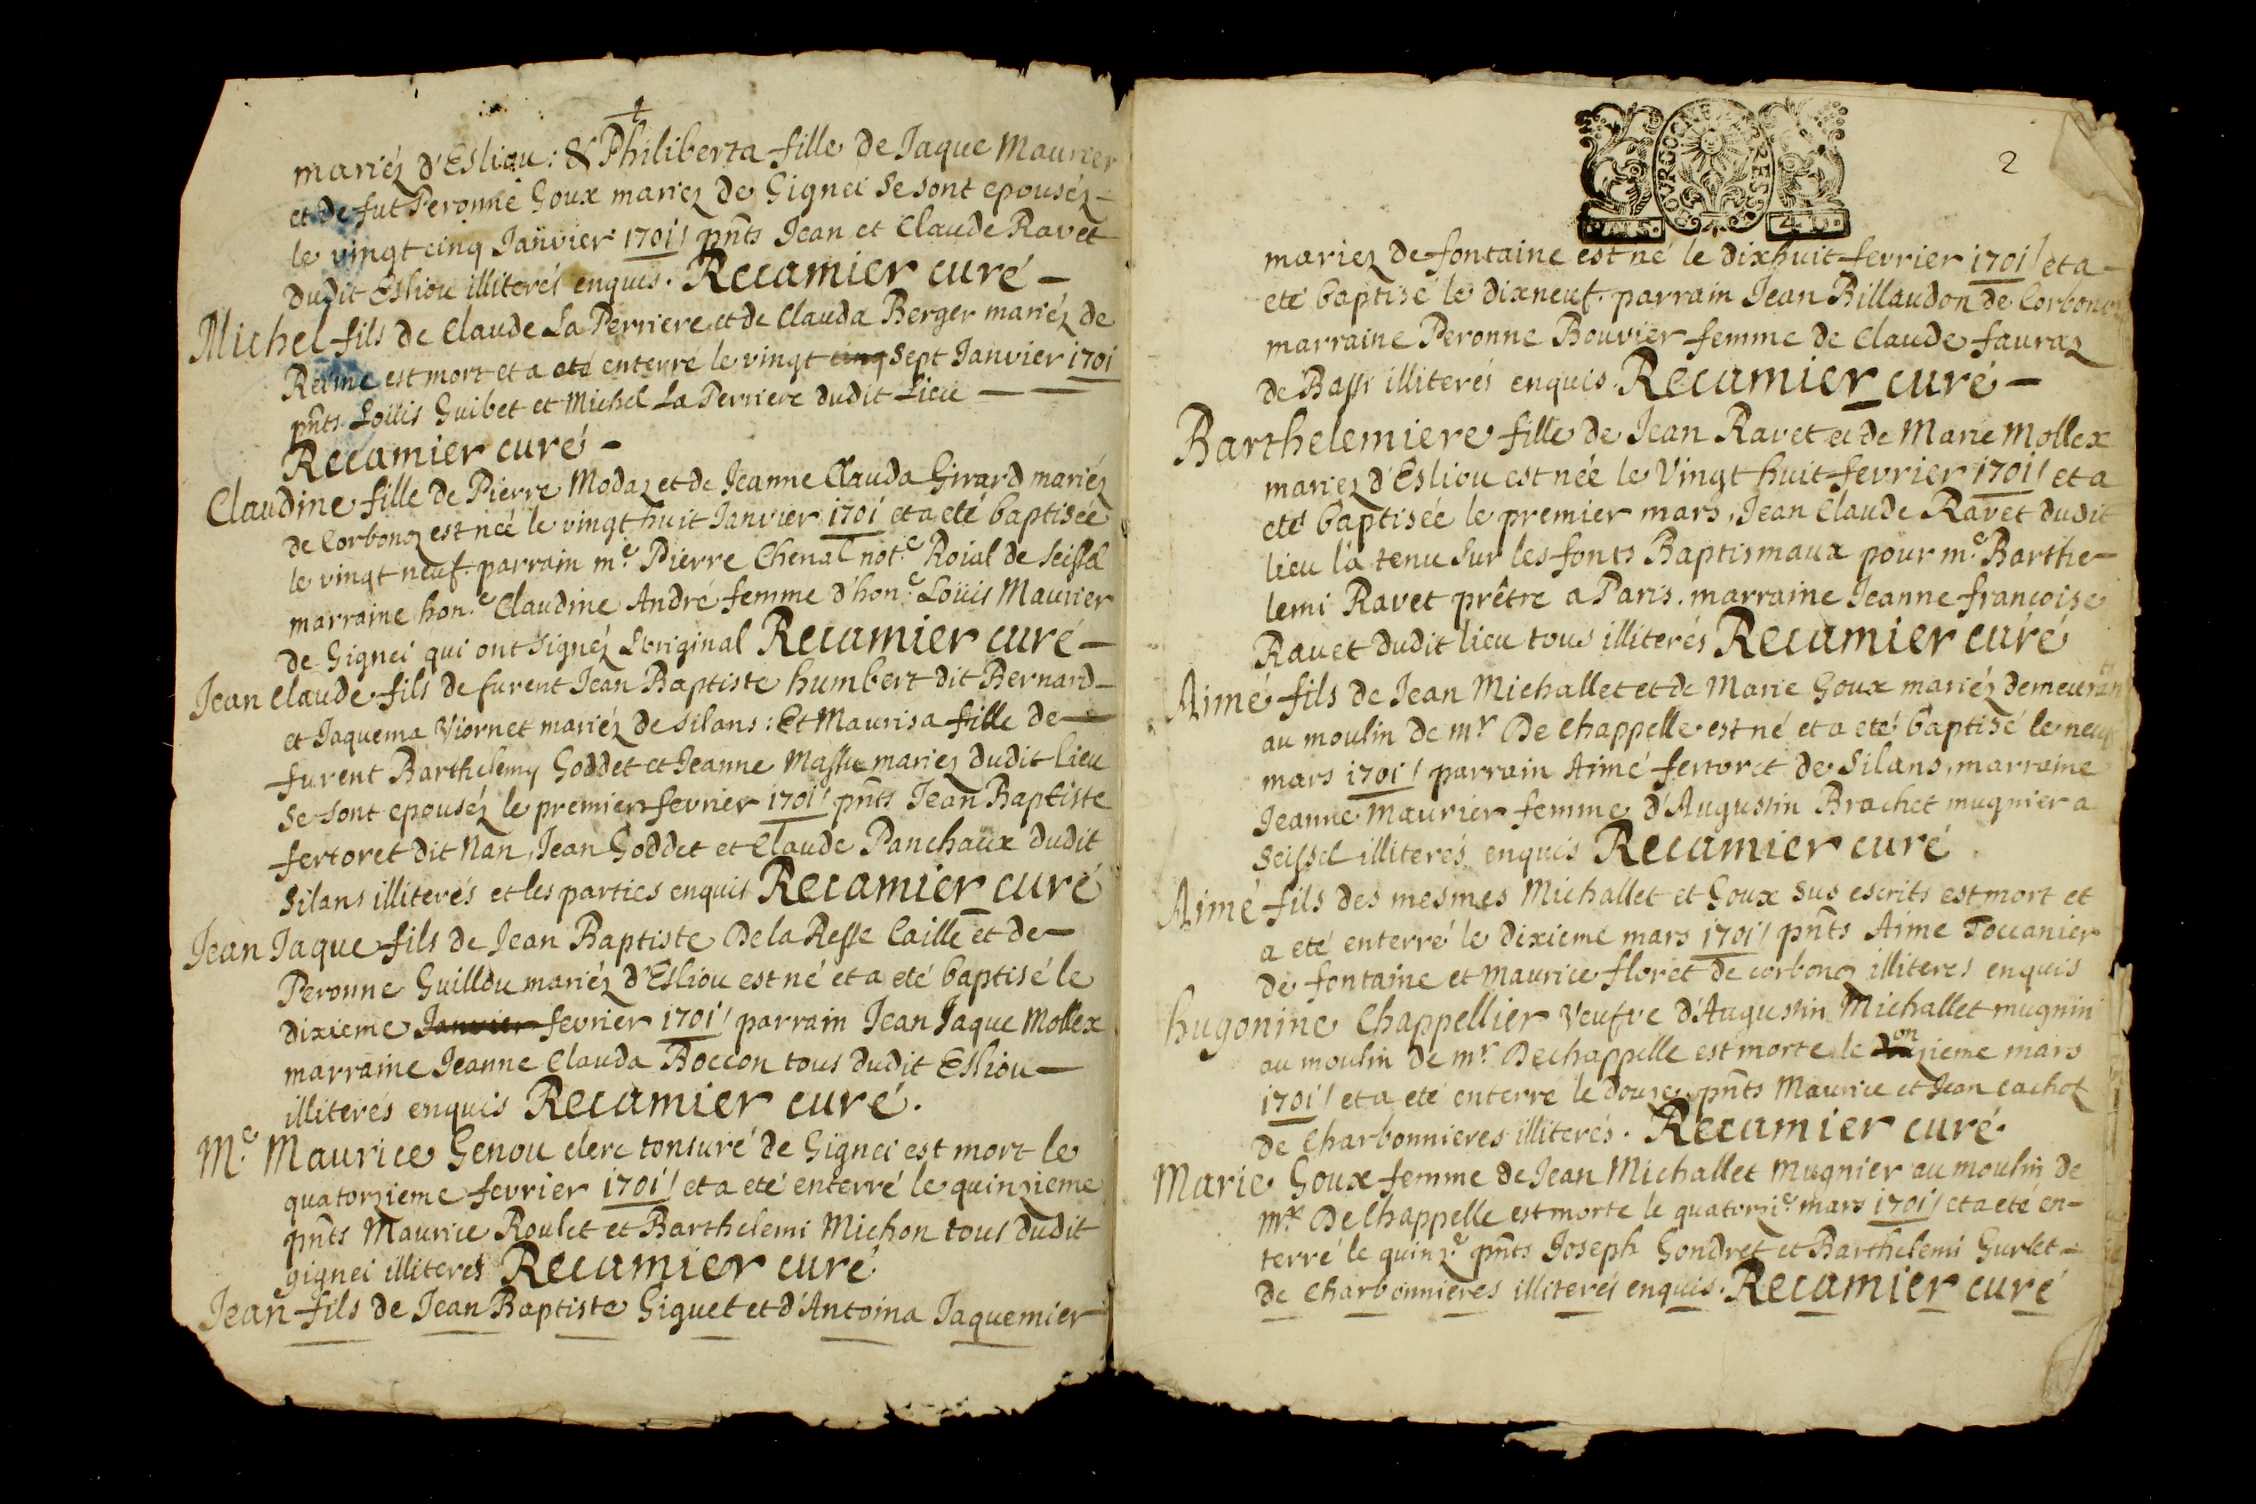 mariéz d'Esliou : & Philiberta fille de Jaque Maurier
et de fut Peronne Goux mariez de Gignei se sont epouséz –
le vingt cinq Janvier 1701 / pnts Jean et Claude Ravet
dudit Esliou illiterés enquis. Recamier curé –
Michel fils de Claude La Perriere et de Clauda Berger mariéz de
est mort et a eté enterré le vingt cinq sept Janvier 1701
pnts Loüis Guibet et Michel La Perriere dudit Lieu —
Recamier curé –
Claudine fille de Pierre Modaz et de Jeanne Clauda Girard mariéz
de Corbonoz est neé le vingt huit Janvier 1701 et a eté baptisée
le vingt neuf. parrain me. Pierre Chenal note. Roial de Seissel
marraine hone. Claudine André femme d'hone. Loüis Maurier
de Gignei qui ont signéz L'original Recamier curé –
Jean Claude fils de furent Jean Baptiste humbert dit Bernard –
et Jaquema Viornet mariéz de silans : Et Maurisa fille de –
furent Barthelemy Goddet et Jeanne Masse mariez dudit lieu
se sont epouséz le premier fevrier 1701 / pnts Jean Baptiste
fertoret dit Nan, Jean Goddet et Claude Panchaux dudit
Silans illiterés et les parties enquis Recamier curé
Jean Jaque fils de Jean Baptiste De la Resse Caille et de –
Peronne Guillou mariéz d'Esliou est né et a eté baptisé le
dixieme Janvier fevrier 1701 / parrain Jean Jaque Mollex
marraine Jeanne Clauda Boccon tous dudit Esliou —
illiterés enquis Recamier curé.
Me. Maurice Genou clerc tonsuré de Gignei est mort le
quatorzieme fevrier 1701 / et a eté enterré le quinzieme
pnts Maurice Roulet et Barthelemi Michon tous dudit
gignei illiterés Recamier curé
Jean fils de Jean Baptiste Giguet et d'Antoina Jaquemier
BOURGOGNE ET BRESSE
2
mariez de fontaine est né le dixhuit fevrier 1701 / et a –
eté baptisé le dixneuf. parrain Jean Billaudon de Corbonoz
marraine Peronne Bouvier femme de Claude favraz
de Bassi illiterés enquis. Recamier curé –
Barthelemiere fille de Jean Ravet et de Marie Mollex
mariez d'Esliou est née le Vingt huit fevrier 1701 / et a
eté baptisée le premier mars, Jean Claude Ravet dudit
lieu l'a tenu sur les fonts Baptismaux pour me. Barthe-
lemi Ravet prêtre a Paris. marraine Jeanne françoise
Ravet dudit lieu tous illiterés Recamier curé
Aimé fils de Jean Michallet et de Marie Goux mariéz demeurants
au moulin de mr De Chappelle est né et a eté baptisé le neuf
mars 1701 / parrain Aimé fertoret de Silans, marraine
Jeanne Maurier femme d'Augustin Brachet mugnier a
Seissel illiterés enquis Recamier curé.
Aimé fils des mesmes Michallet et Goux sus escrits est mort et
a eté enterré le dixieme mars 1701 / pnts Aime Toccanier
de fontaine et Maurice floret de corbonoz illiteres enquis
hugonine Chappellier Veufve d'Augustin Michallet mugnini
au moulin de mr Dechappelle est morte le onzieme mars
1701 / et a eté enterré le douze. pnts Maurice et Jean cachot
de Charbonnieres illiterés. Recamier curé.
Marie Goux femme de Jean Michallet Mugnier au moulin de
Mr. De Chappelle est morte le quatorzie. mars 1701 / et a eté en-
terré le quinze. pnts Joseph Gondret et Barthelemi Gurlet –
de Charbonnieres illiterés enquis. Recamier curé